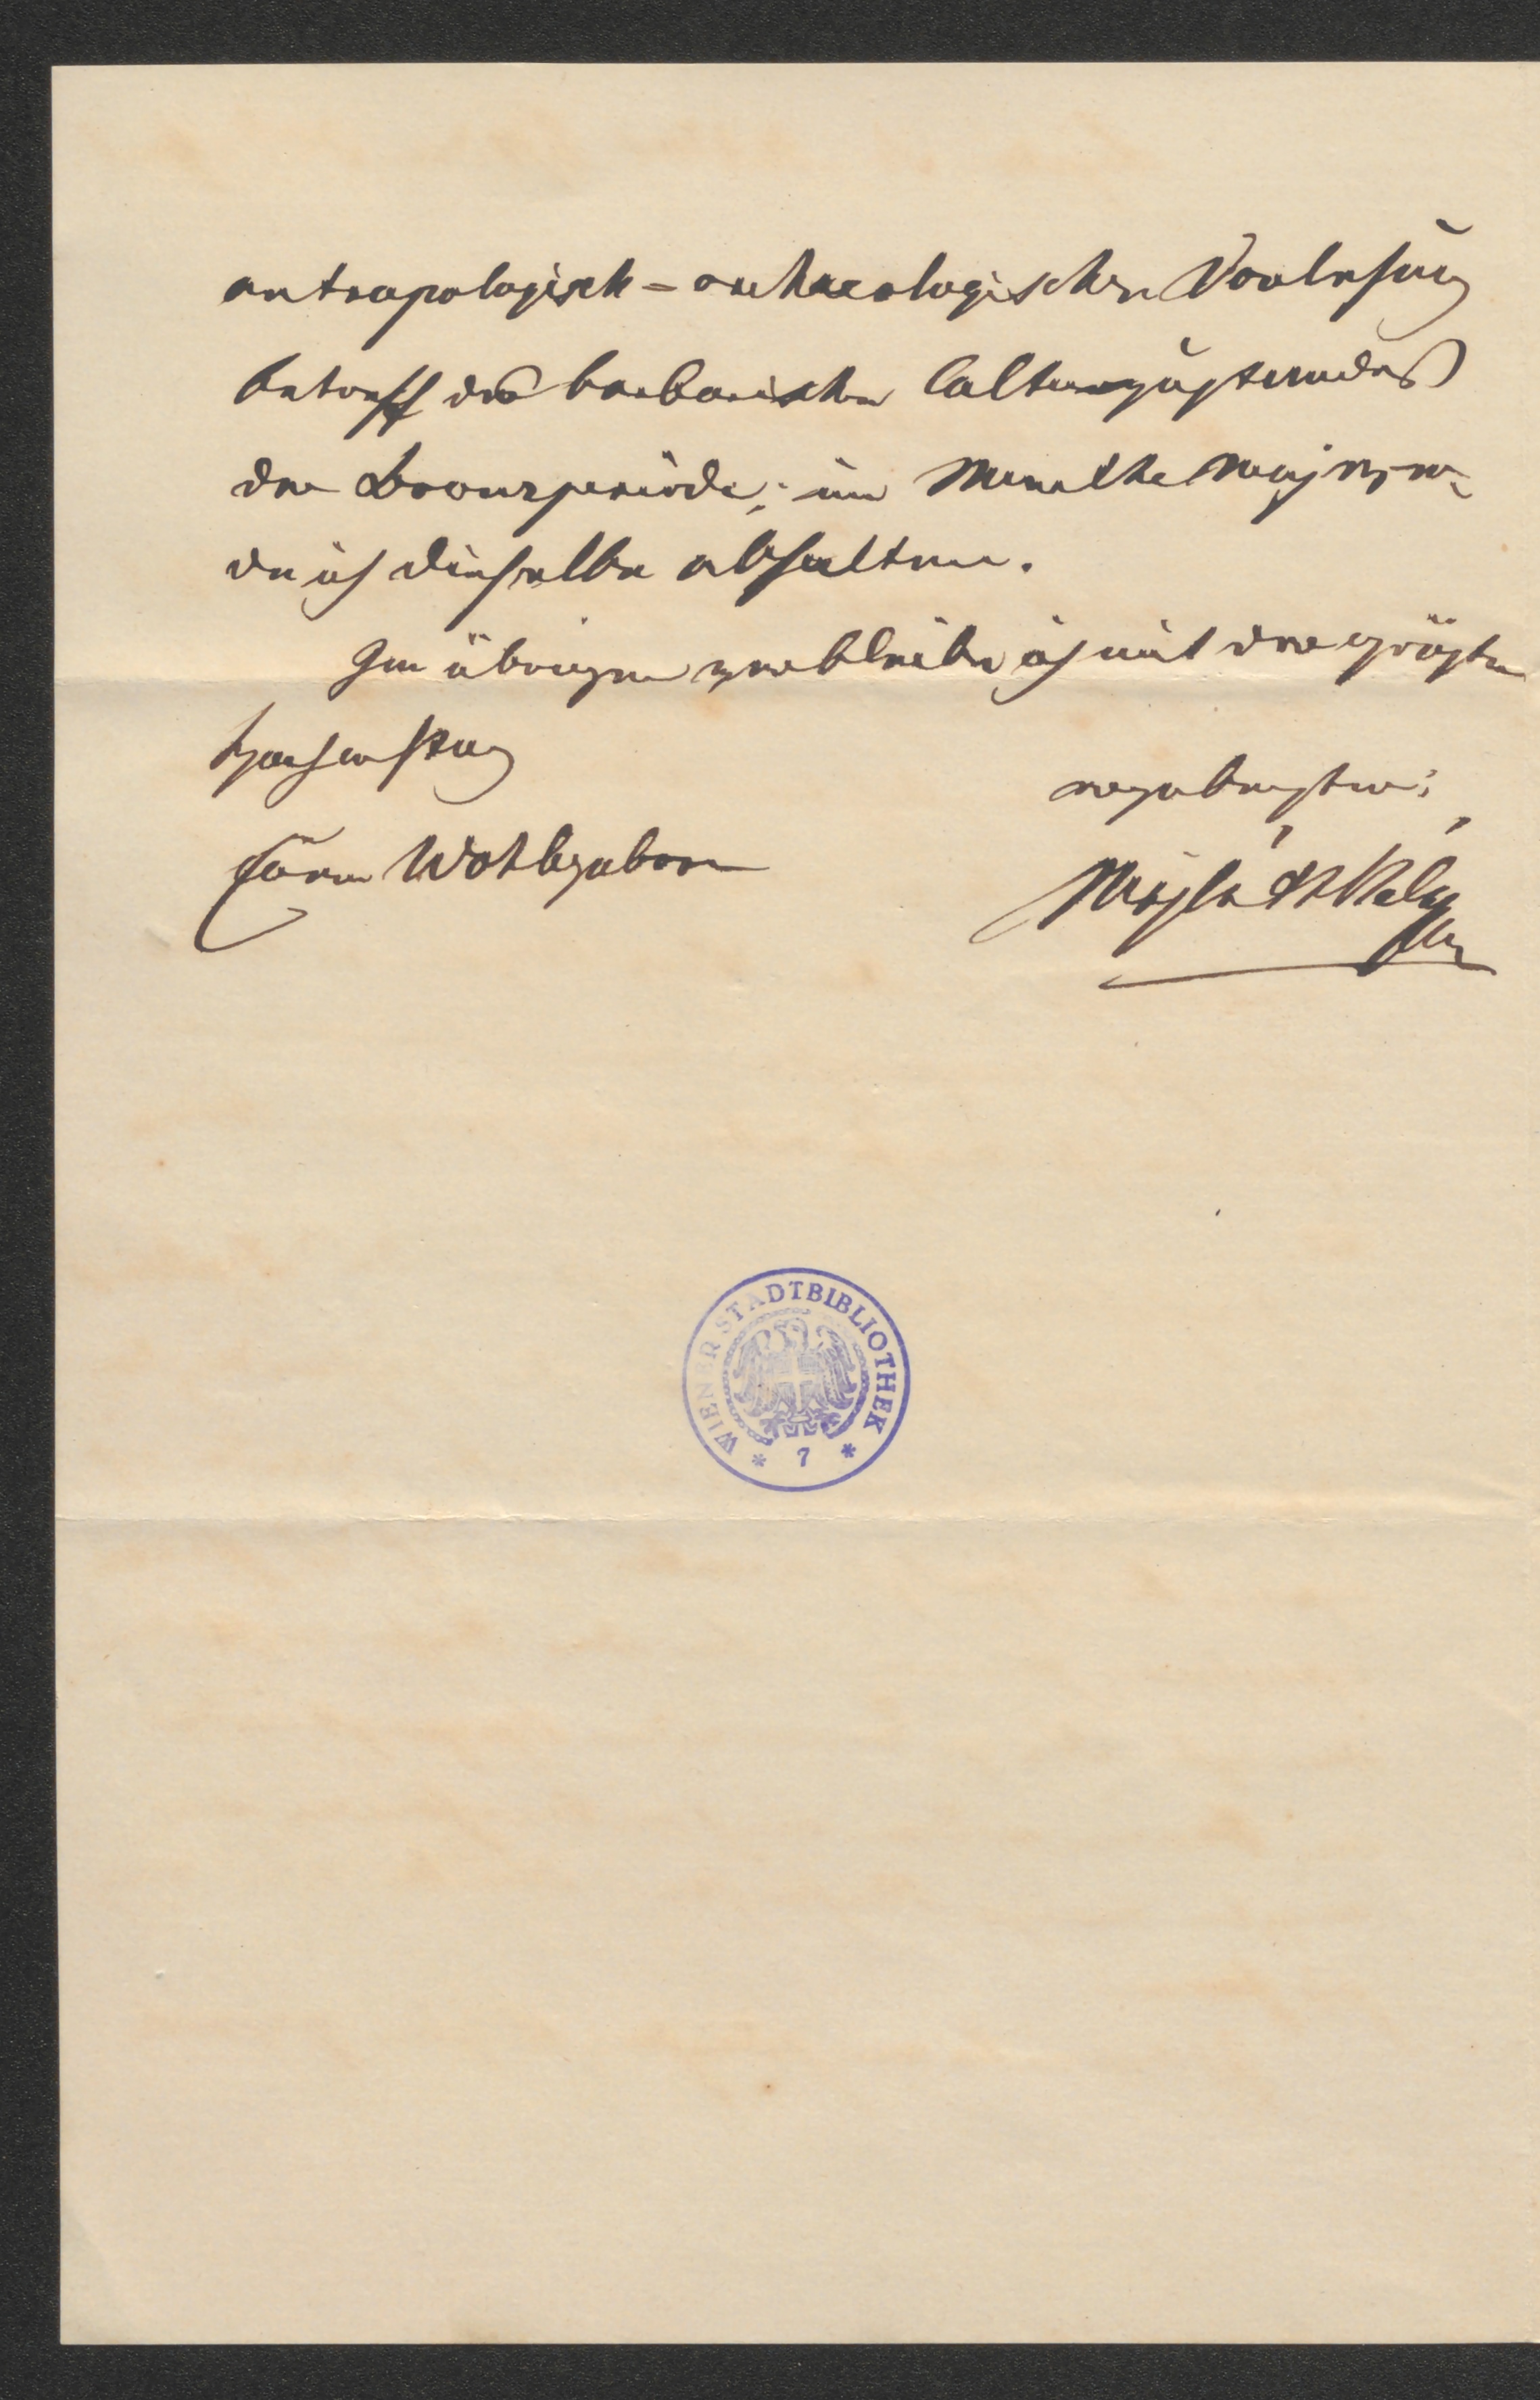 antropologisch-archaeologischen Vorlesung
betreff des barbarischen Culturzustandes
der Bronzperiode; im Monathe
de ich dieselbe abhalten.
Im übrigen verbleibe ich mit der größten
Hochachtung
ergebenster
Euer Wohlgeboren
WIENER STADTBIBLIOTHEK
* 7 *